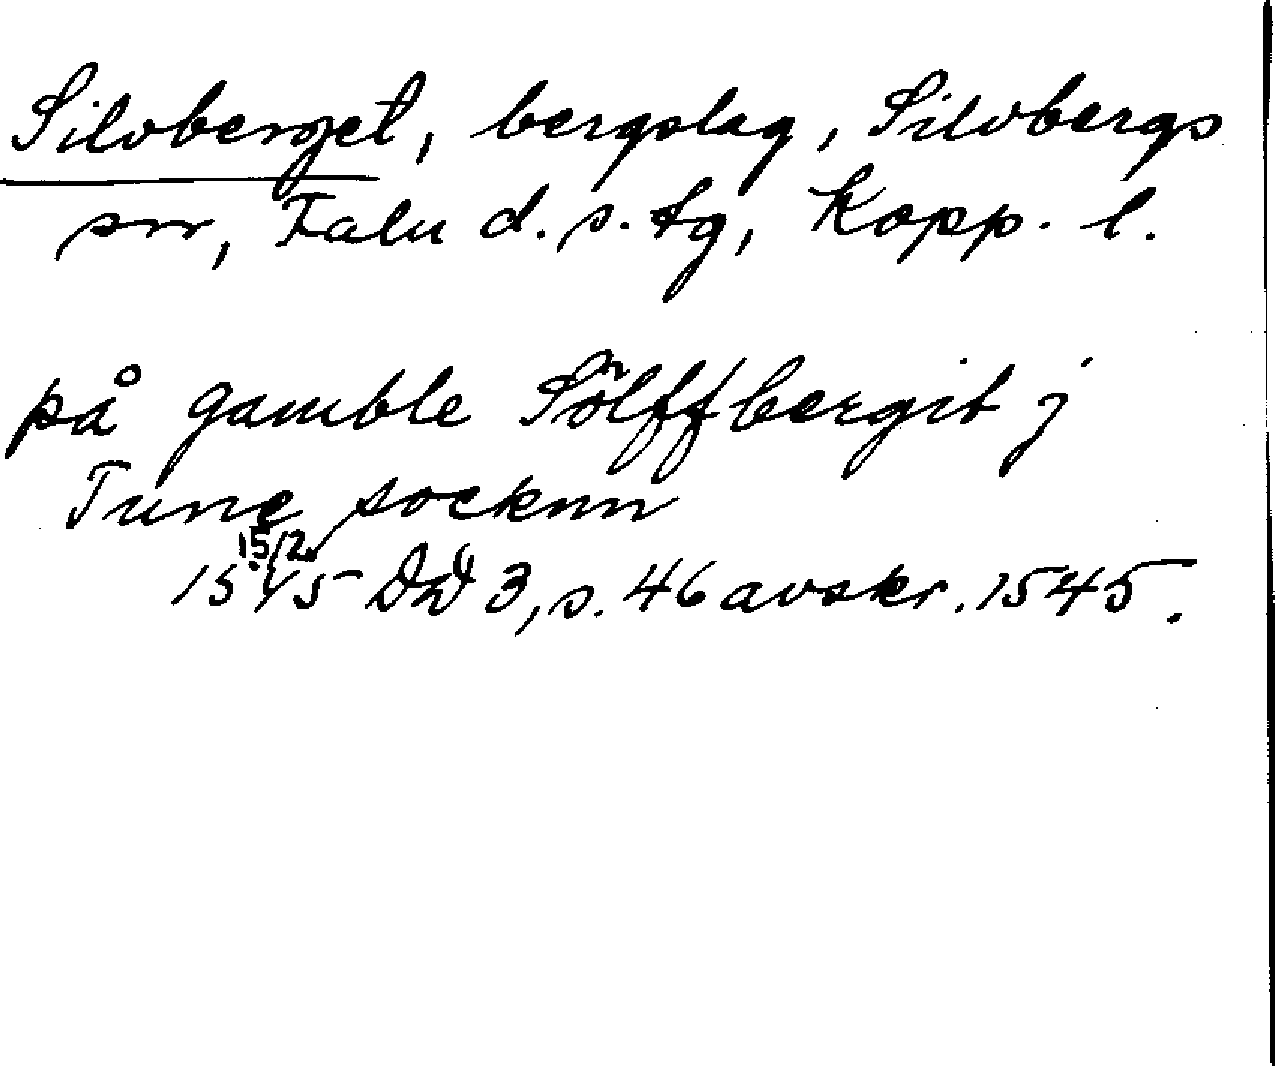 Silvberget, bergslag, Silvbergs
sn, Falu d. s. tg, Kopp. l.
på gamble Sölffbergit j
Tune socknn
15/2
1545 DD 3, s. 46 avskr. 1545.